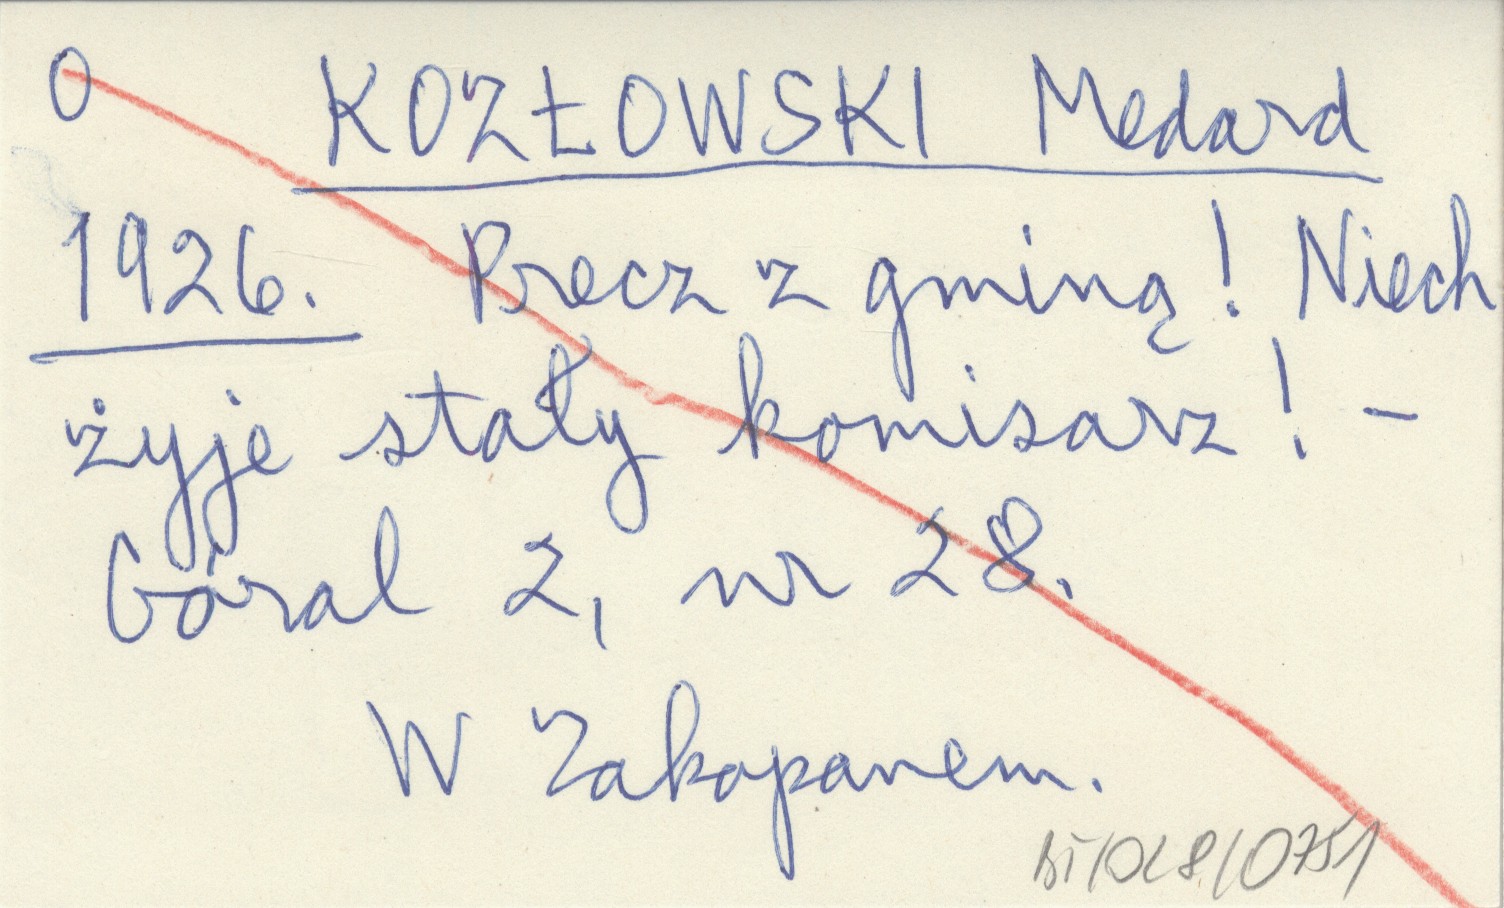 O KOZŁOWSKI Medard
1926. Precz z gminą! Niech
żyje stały komisarz! –
Góral 2, nr 28.
W Zakopanem.